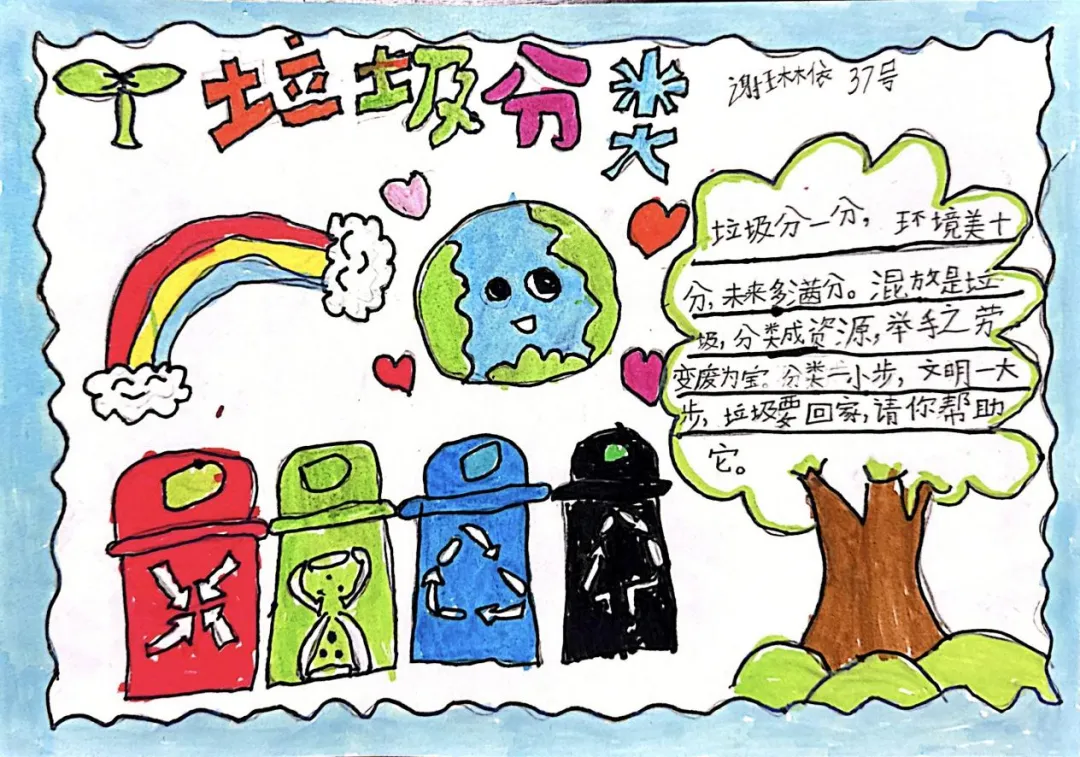 垃圾分类
谢琳依 37号
垃圾分一分，环境美十
分，未来多满分。混放是垃
圾，分类成资源，举手之劳
变废为宝。分类一小步，文明一大
步，垃圾要回家，请你帮助
它。